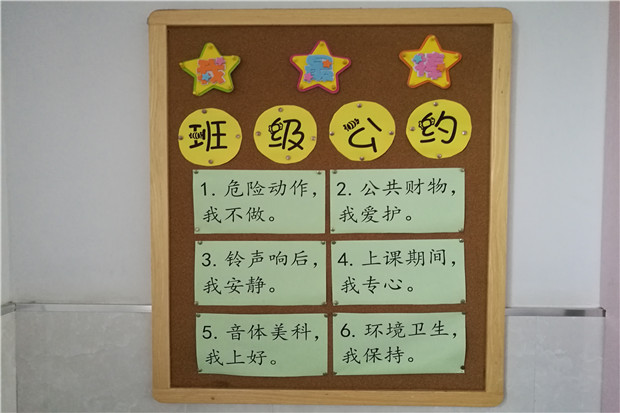 我 最 棒
班级公约
1. 危险动作，
我不做。
2. 公共财物，
我爱护。
3. 铃声响后，
我安静。
4. 上课期间，
我专心。
5. 音体美科，
我上好。
6. 环境卫生，
我保持。